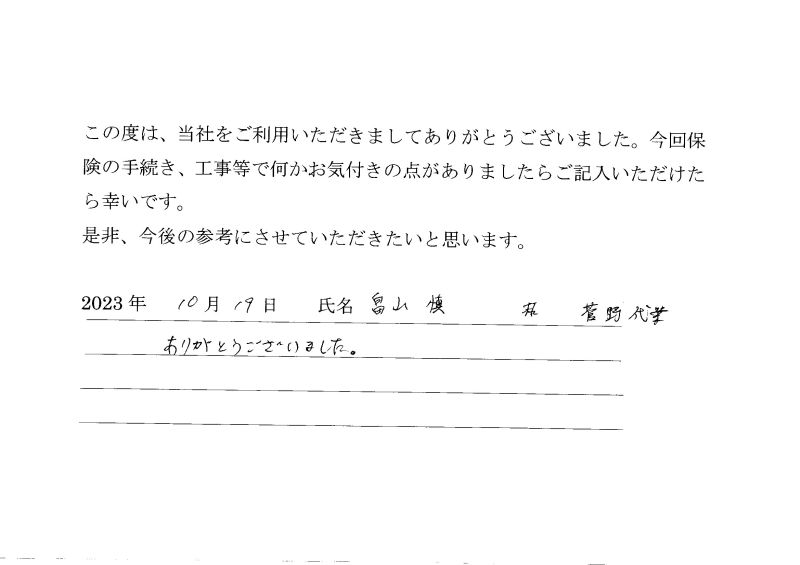 この度は、当社をご利用いただきましてありがとうございました。今回保
険の手続き、工事等で何かお気付きの点がありましたらご記入いただけた
ら幸いです。
是非、今後の参考にさせていただきたいと思います。
2023 年 10 月 19 日 氏名 畠山 慎 菅野 代筆
ありがとうございました。